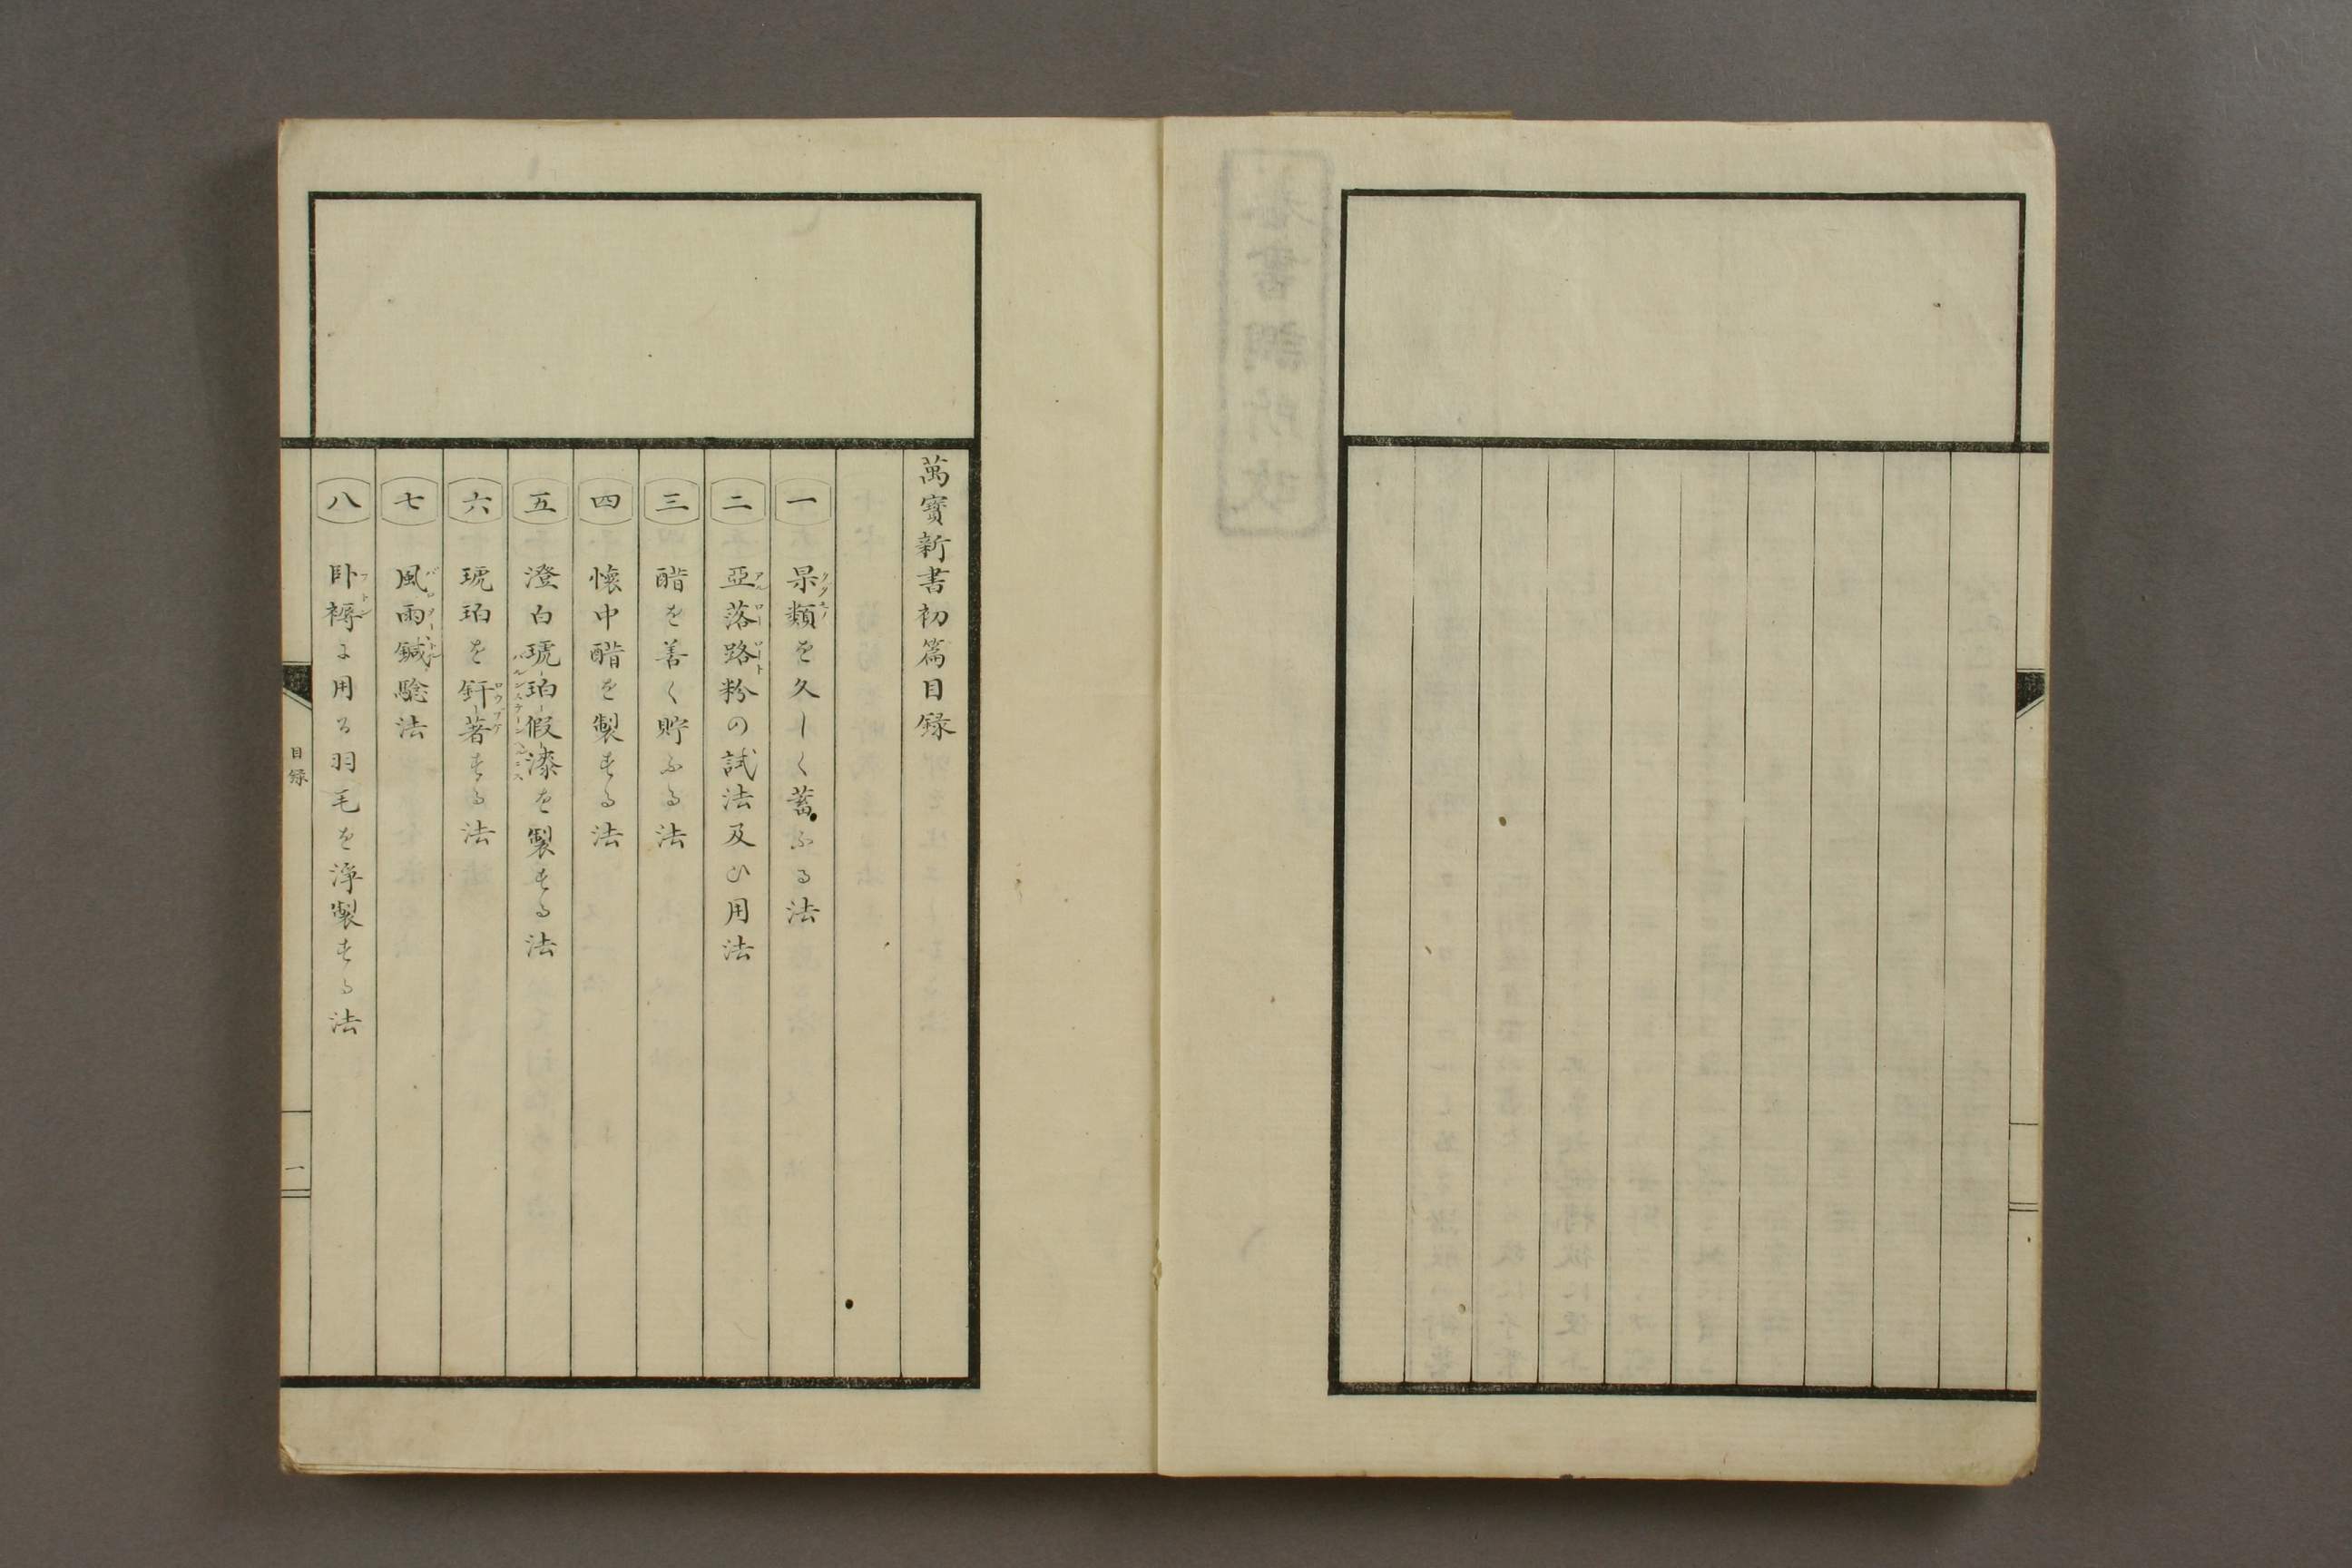 萬寶新書初篇目録
一 果類を久しく蓄ふる法
二 亞落路粉の試法及ひ用法
三 醋を善く貯ふる法
四 懐中醋を製する法
五 澄白琥珀假漆を製する法
六 琥珀を釬著する法
七 風雨鍼騐法
八 臥褥に用る羽毛を淨製する法
目録
一